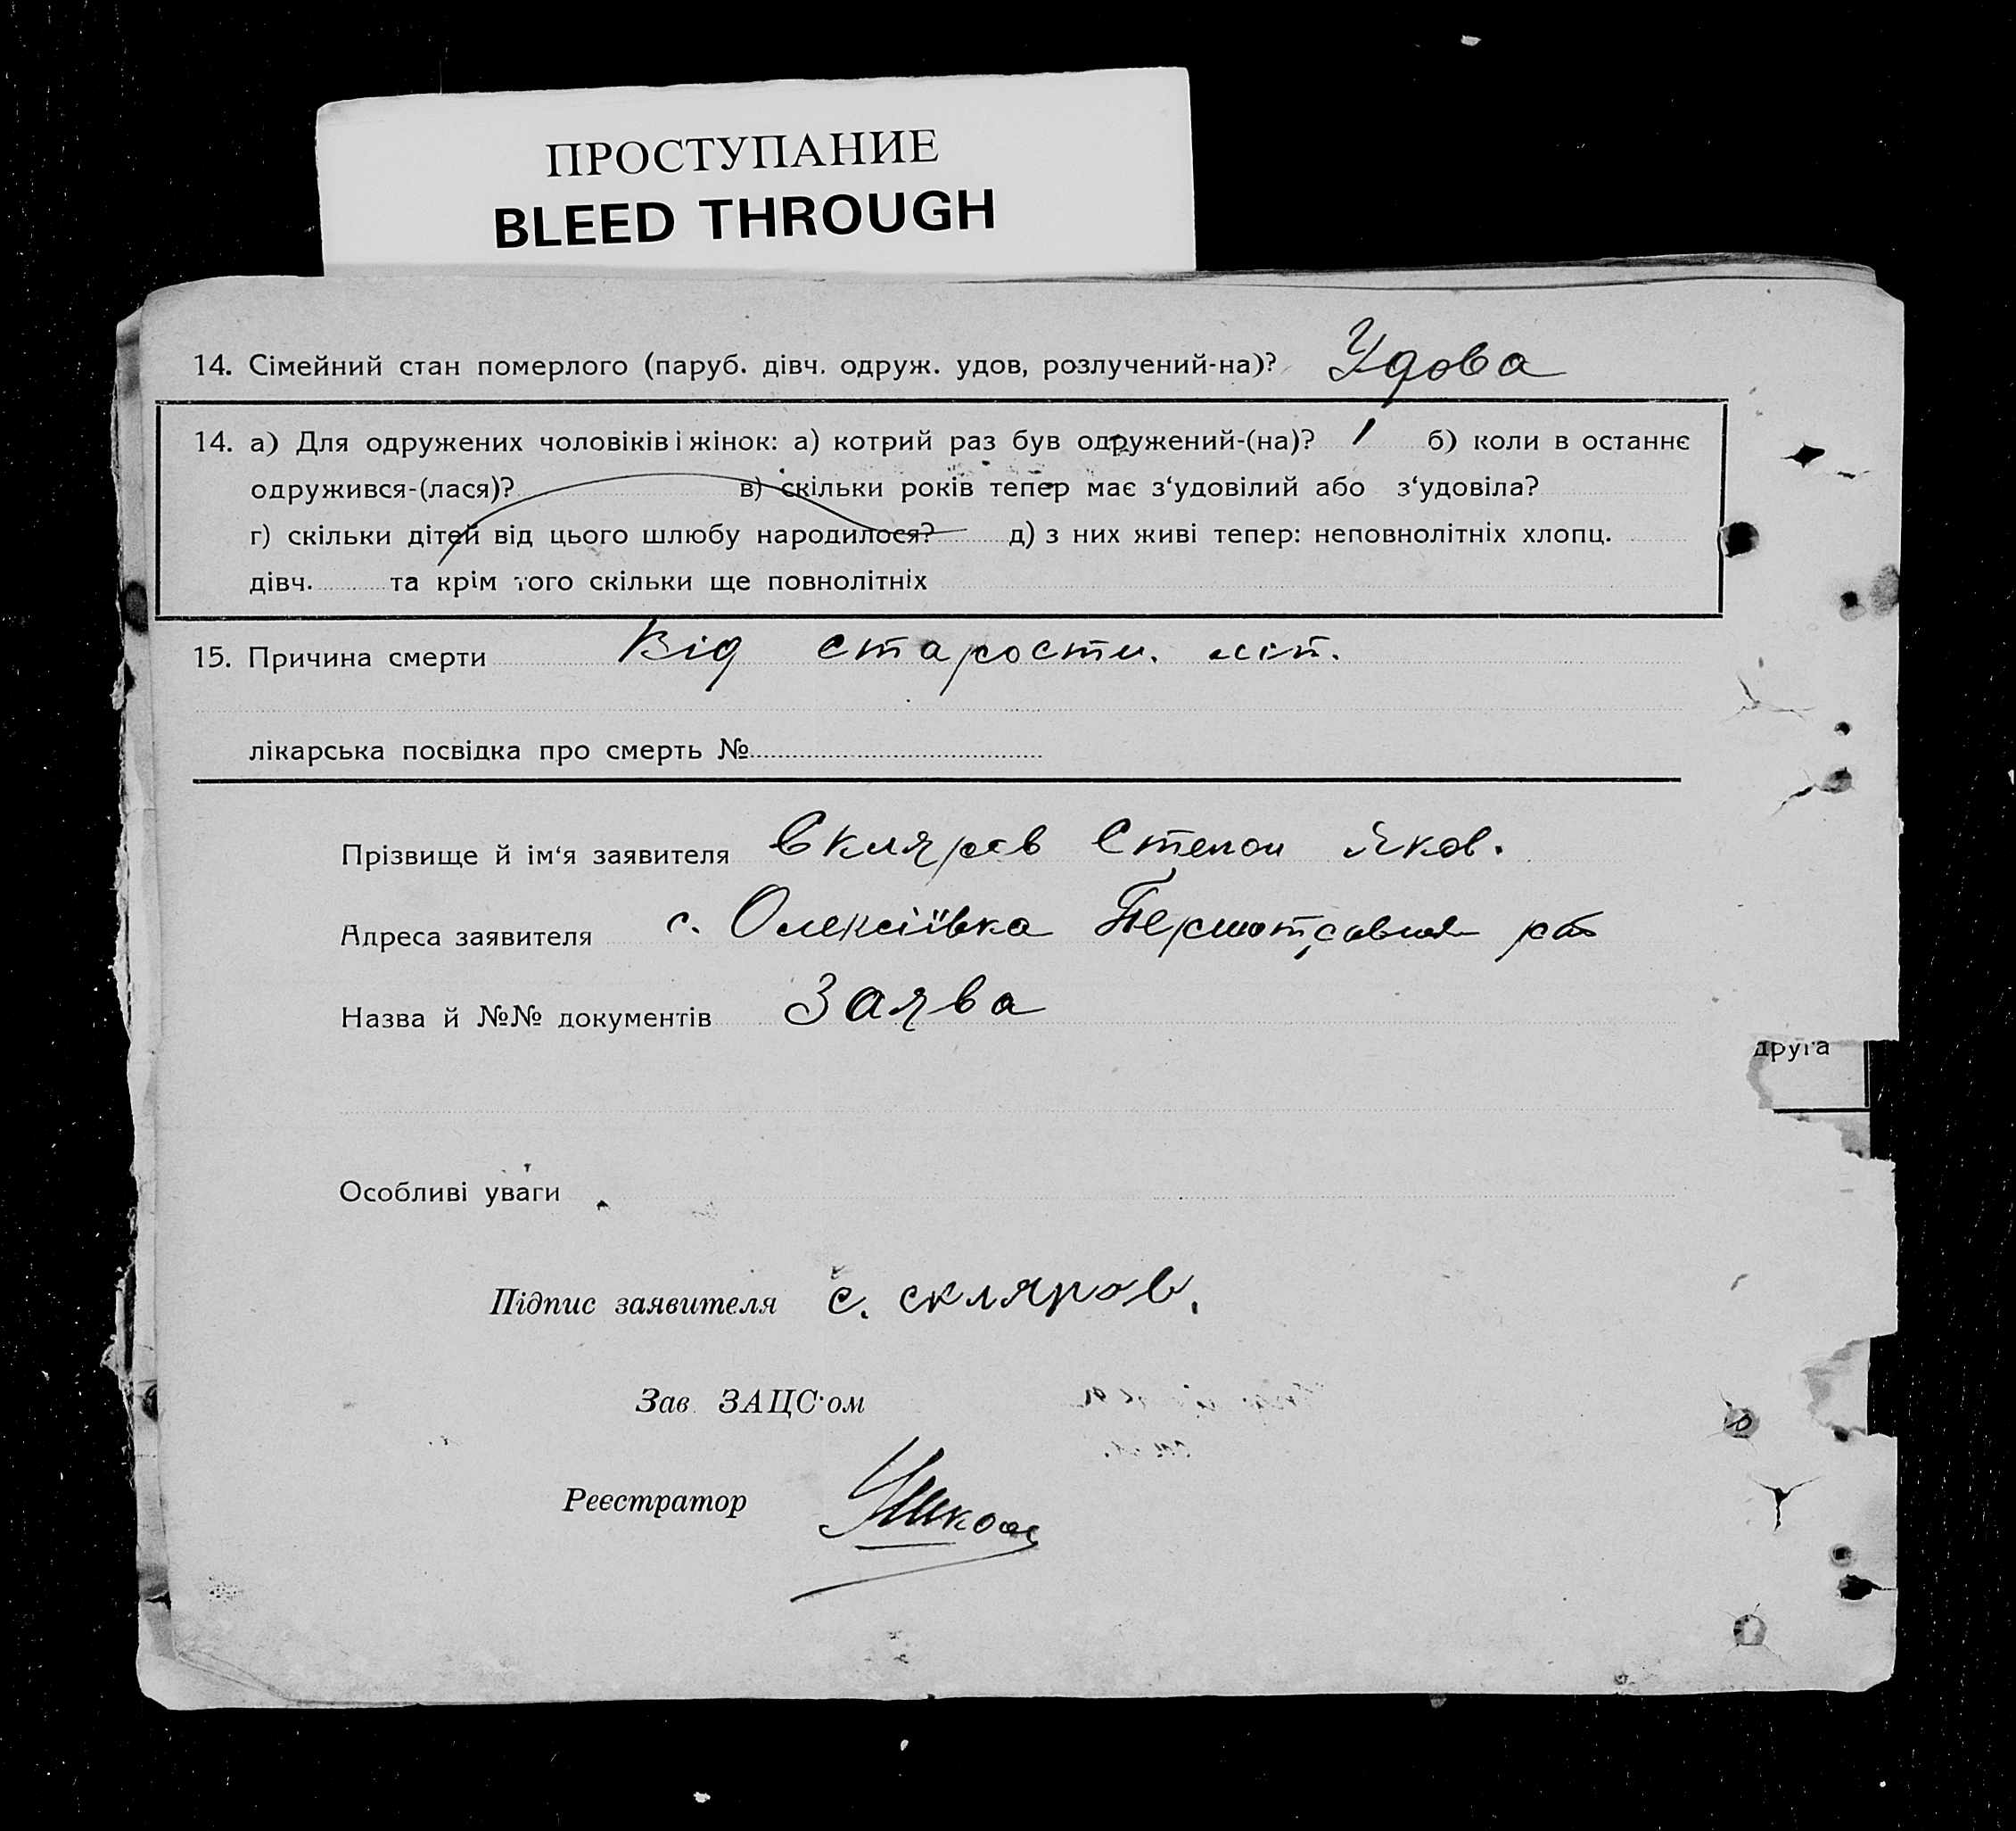 ПРОСТУПАНИЕ
BLEED THROUGH
14. Сімейний стан померлого (паруб. дівч. одруж. удов, розлучений-на)? Удова
14. а) Для одружених чоловіків і жінок: а) котрий раз був одружений-(на)? 1 б) коли в останнє
одружився-(лася)? в) скільки років тепер має з‘удовілий або з‘удовіла?
г) скільки дітей від цього шлюбу народилося? д) з них живі тепер: неповнолітніх хлопц.
дівч. та крім того скільки ще повнолітніх
15. Причина смерти Від старости. літ.
лікарська посвідка про смерть №
Прізвище й ім‘я заявителя Скляров Степан Яков.
Адреса заявителя с. Олексіївка
Назва й №№ документів Заява
друга
Особливі уваги
Підпис заявителя С. скляров.
Зав. ЗАЦС‘ом
Реєстратор